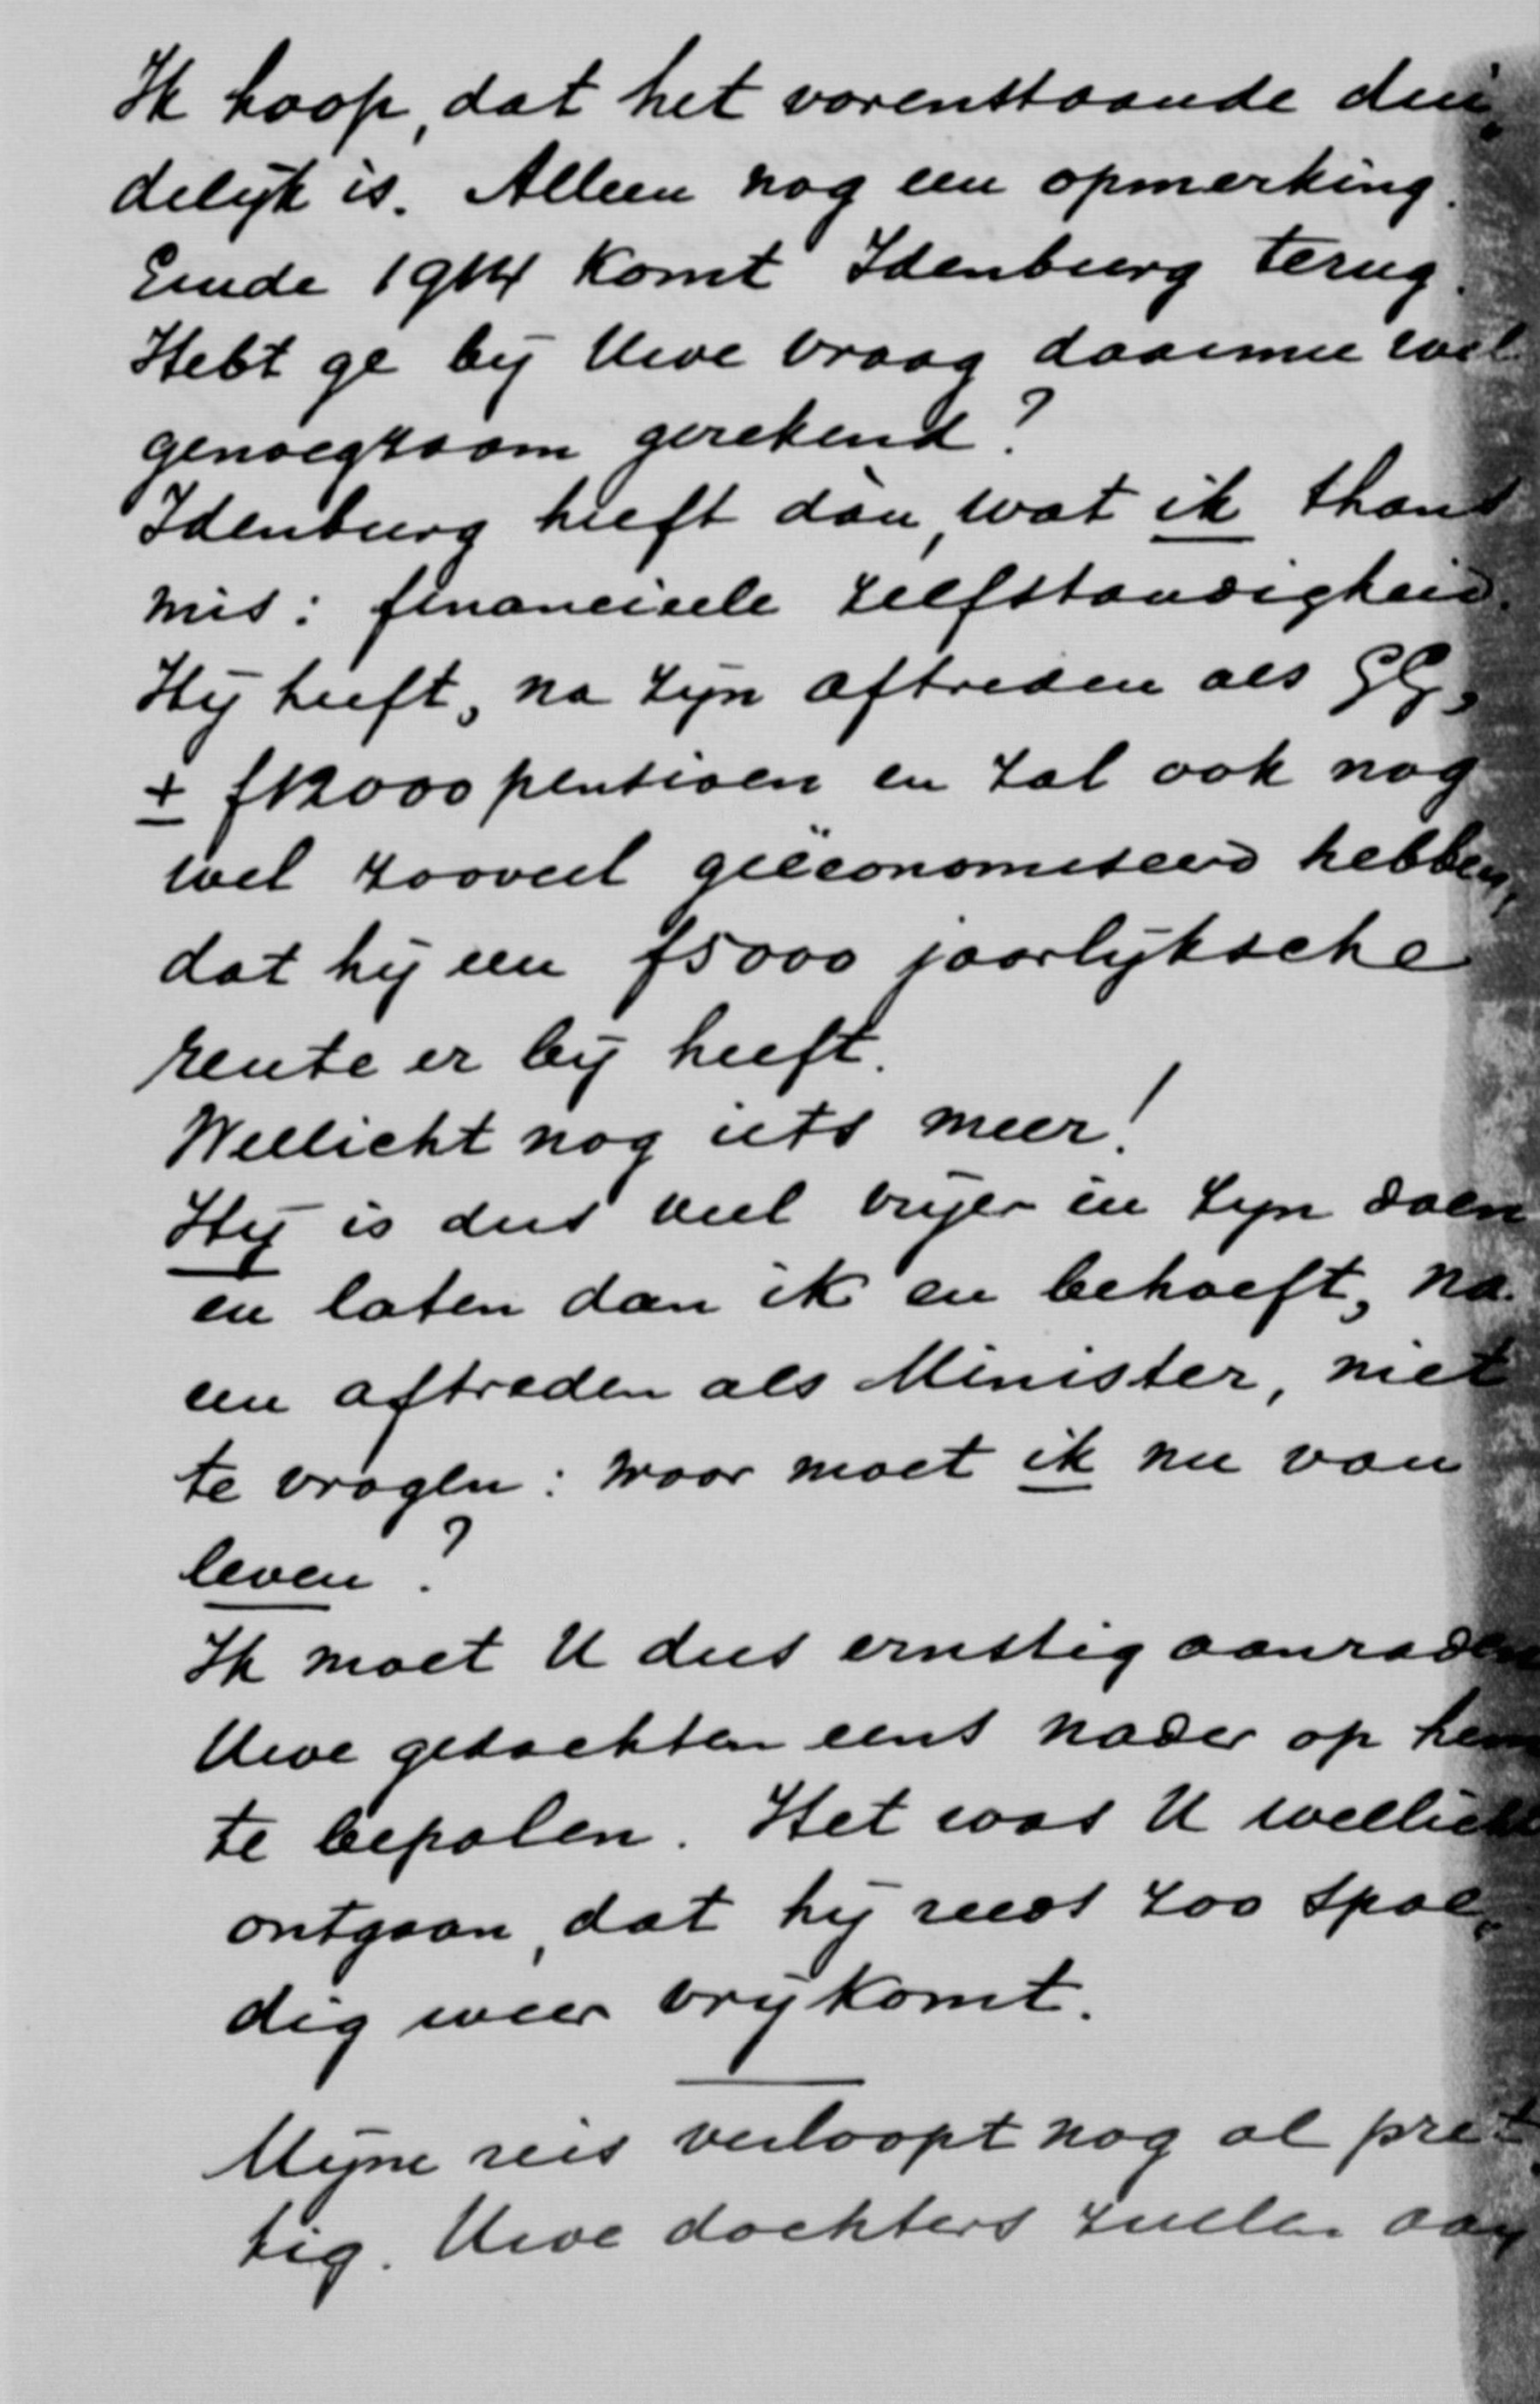 Ik hoop, dat het vorenstaande dui„
delijk is. Alleen nog een opmerking.
Einde 1914 komt Idenburg terug.
Hebt ge bij Uwe vraag daarmee wel
genoegzaam gerekend?
Idenburg heeft dàn, wat ik thans
mis: financieele zelfstandigheid.
Hij heeft, na zijn aftreden als GG,
± f12000 pensioen en zal ook nog
wel zooveel geëconomiseerd hebben,
dat hij een f5000 jaarlijksche
rente er bij heeft.
Wellicht nog iets meer!
Hij is dus veel vrijer in zijn doen
en laten dan ik en behoeft, na
een aftreden als Minister, niet
te vragen: waar moet ik nu van
leven?
Ik moet U dus ernstig aanraden
Uwe gedachten eens nader op hem
te bepalen. Het was U wellicht
ontgaan, dat hij reeds zoo spoe„
dig weer vrijkomt.
Mijne reis verloopt nog al pret„
tig. Uwe dochters zullen